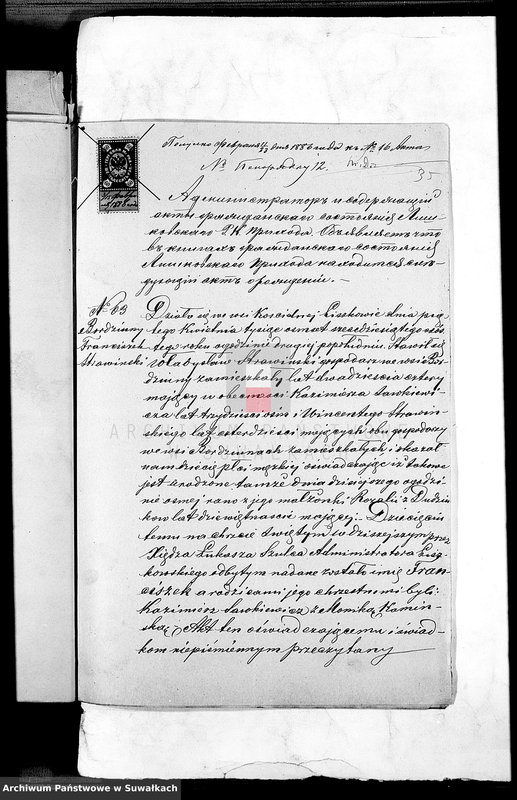 Получено Февраля дня 1886 года къ № 16
№ Попорядку 12.
35
Администраторъ и содержащій
акты гражданскаго состоянія
Р. К. прихода. Объявляетъ что
въ книгахъ гражданскаго состоянія
прихода находится слѣ-
дующій актъ о рожденіи. —
№ 63
Bordzinny
Franciszek
Strawinski
Działo się we wsi Kościelnej Liszkowie dnia pią
tego Kwietnia tysiąc osmset szesdziesiątego
tego roku o godzinie drugiej popołudniu. Stawił się
Władysław Strawiński gospodarz we wsi Bor-
dzinny zamieszkały lat dwadzieścia cztery
mający w obecności Kazimierza Sawkiewi-
cza lat trydzieści osm i Wincentego Strawiń-
skiego lat czterdzieści mających obu gospodarzy
we wsi Bordzinnach zamieszkałych i okazał
nam dziecię płci męzkiej oświadczając iż takowe
jest urodzone tamże dnia dzisiejszego o godzi-
nie osmej rano z jego małżonki Rozalii z Dudzin
ków lat dziewiętnaści mającej. — Dziecięciu
temu na chrzcie świętym w dniu dzisiejszym przez
Xiędza Łukasza Szulca Administratora Lisz-
kowskiego odbytym nadane zostało imię Fran-
ciszek a rodzicami jego chrzestnemi byli:
Kazimierz Sawkiewicz z Moniką Kamiń-
ską — Akt ten oświadczającemu i świad-
kom niepiśmiennym przeczytany
Archiwum Państwowe w Suwałkach